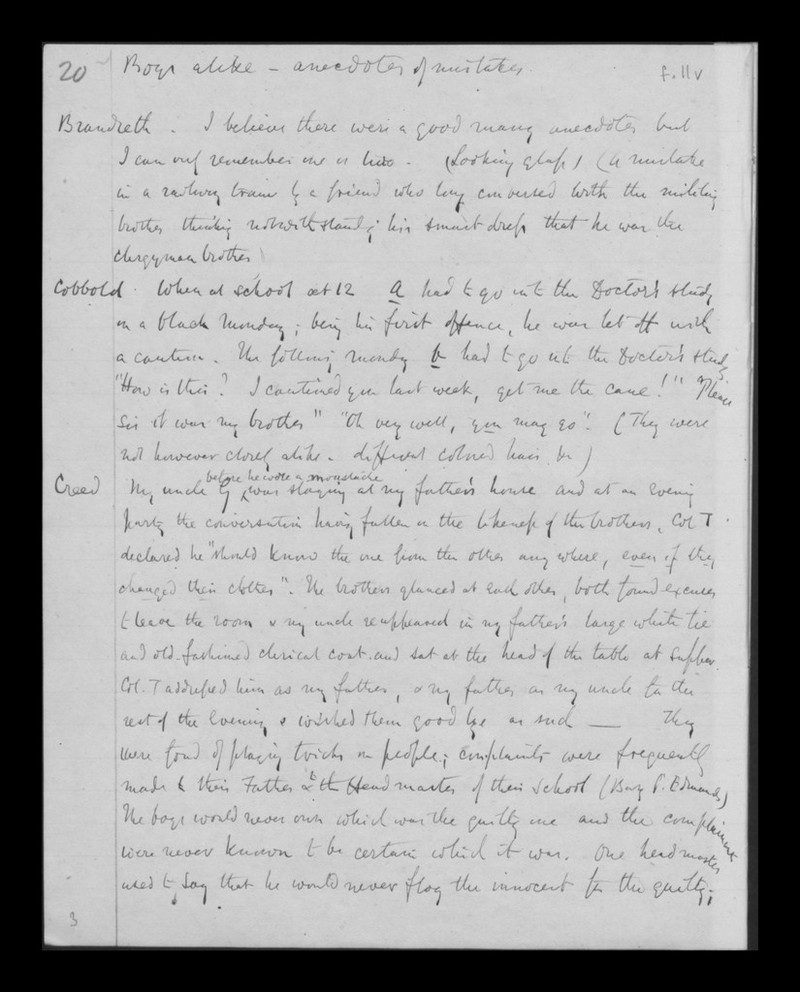 20 Boys alike - anecdotes of mistakes. f.11v
Brandreth. I believe there were a good many anecdotes but
I can only remember one or two. (Looking glass) (a mistake
in a railway train by a friend who long conversed with the military
brother thinking notwithstandg his smart dress that he was the
clergyman brother)
Cobbold. When at school aet 12 A had to go into the Doctor's study
on a black Monday; being his first offence, he was let off with
a caution. The following monday b had to go into the Doctor's study
"How is this? I cautioned you last week, get me the cane!" "Please
Sir it was my brother" "Oh very well, you may go". (They were
not however closely alike - different colored hair &c)
Creed My uncle before he wore a moustache was staying at my father's house and at an Evening
party the conversation having fallen on the likeness of the brothers, Col T.
declared he "should know the one from the other any where, even if they
changed their clothes". The brothers glanced at each other, both found excuses
to leave the room & my uncle reappeared in my father's large white tie
and old-fashioned clerical coat and sat at the head of the table at supper.
Col. T addressed him as my father, & my father as my uncle for the
rest of the Evening & wished them good bye as such — They
were fond of playing tricks on people; complaints were frequently
made to their Father & to the Head master of their school (Bury S. Edmunds)
The boys would never own which was the guilty one and the complainants
were never known to be certain which it was. One head master
used to say that he would never flog the innocent for the guilty;
3